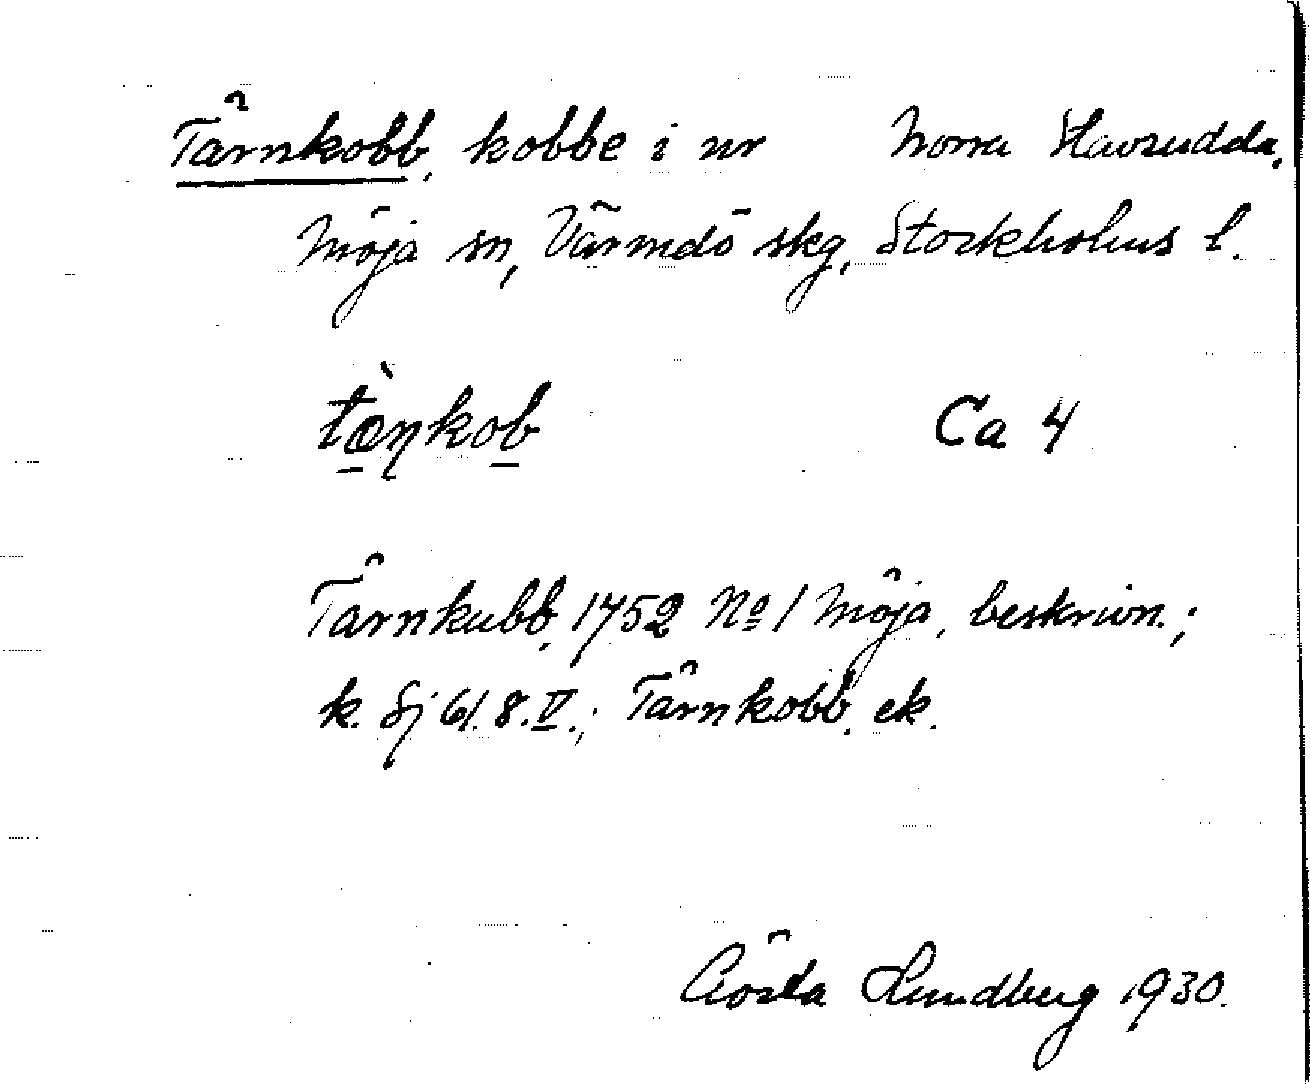 Tärnkobb, kobbe i nr Norra Havsudda,
Möja sn, Värmdö skg, Stockholms l.
tæ̀ṇkob Ca 4
Tärnkubb, 1752 No 1 Möja, beskrivn.;
k. Sj 61. 8. V.; Tärnkobb, ek.
Gösta Lundberg 1930.